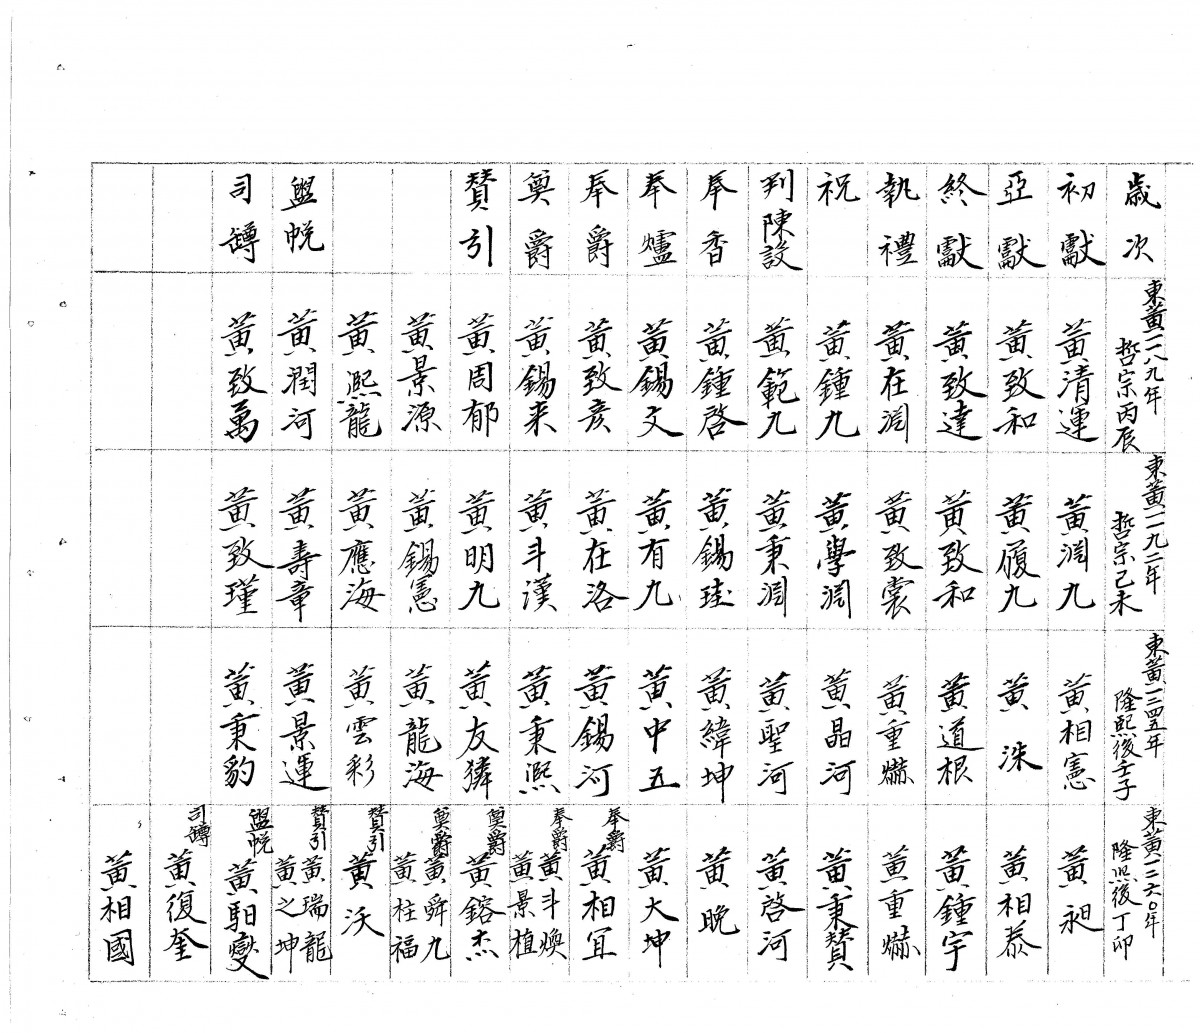 歲次
初獻
亞獻
終獻
執禮
祝
判陳設
奉香
奉爐
奉爵
奠爵
贊引
盥帨
司罇
東黃一一八九年
哲宗丙辰
黃清運
黃致和
黃致達
黃在淵
黃鍾九
黃範九
黃鍾啓
黃錫文
黃致彦
黃錫来
黃周郁
黃景源
黃熙龍
黃潤河
黃致萬
東黃一一九二年
哲宗己未
黃淵九
黃履九
黃致和
黃致裳
黃學淵
黃秉淵
黃錫珪
黃有九
黃在洛
黃斗漢
黃明九
黃錫憲
黃應海
黃壽章
黃致瑾
東黃一二四五年
隆熙後壬子
黃相憲
黃洙
黃道根
黃重爀
黃晶河
黃聖河
黃緯坤
黃中五
黃錫河
黃秉熙
黃友獜
黃龍海
黃雲彩
黃景運
黃秉豹
東黃一二六〇年
隆熙後丁卯
黃昶
黃相泰
黃鍾宇
黃重爀
黃秉贊
黃啓河
黃晚
黃大坤
奉爵
黃相宜
奉爵
黃斗煥
黃景植
奠爵
黃鎔杰
奠爵
黃舜九
黃柱福
贊引
黃沃
贊引
黃瑞龍
黃之坤
盥帨
黃馹變
司罇
黃復奎
黃相國